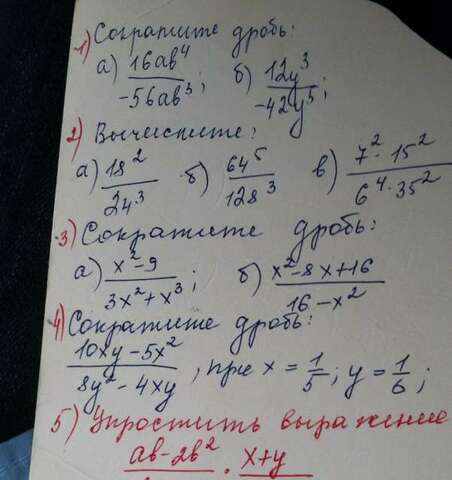 1) Сократите дробь:
а) 16ab⁴/-56ab³; б) 12y³/-42y⁵;
2) Вычислите:
а) 18²/24³ б) 64⁵/128³ в) 7²·15²/6⁴·35²
3) Сократите дробь:
а) x²-9/3x²+x³; б) x²-8x+16/16-x²
4) Сократите дробь:
10xy-5x²/8y²-4xy, при x=1/5; y=1/6;
5) Упростить выражение
ab-2b² · x+y